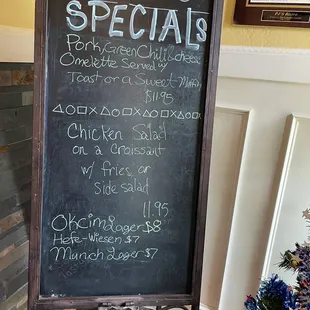 SPECIALS
Pork, Green Chili & cheese
Omelette Served w/
Toast or a Sweet Muffin
$11.95
Chicken Salad
on a croissant
w/ fries or
side salad
11.95
Okcim Lager $8
Hefe-Wiesen $7
Munich Lager $7